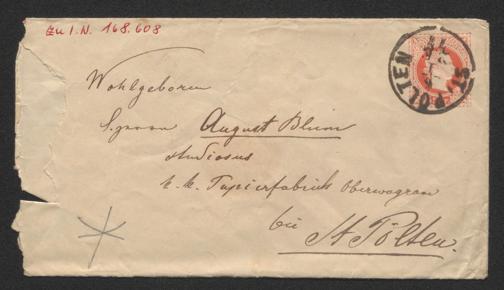 Zu I.N. 168.608
ST. PÖLTEN
Wohlgeboren
Herrn August Blum
Studiosus
k. k. Papierfabrik Oberwagram
bei
St Pölten.